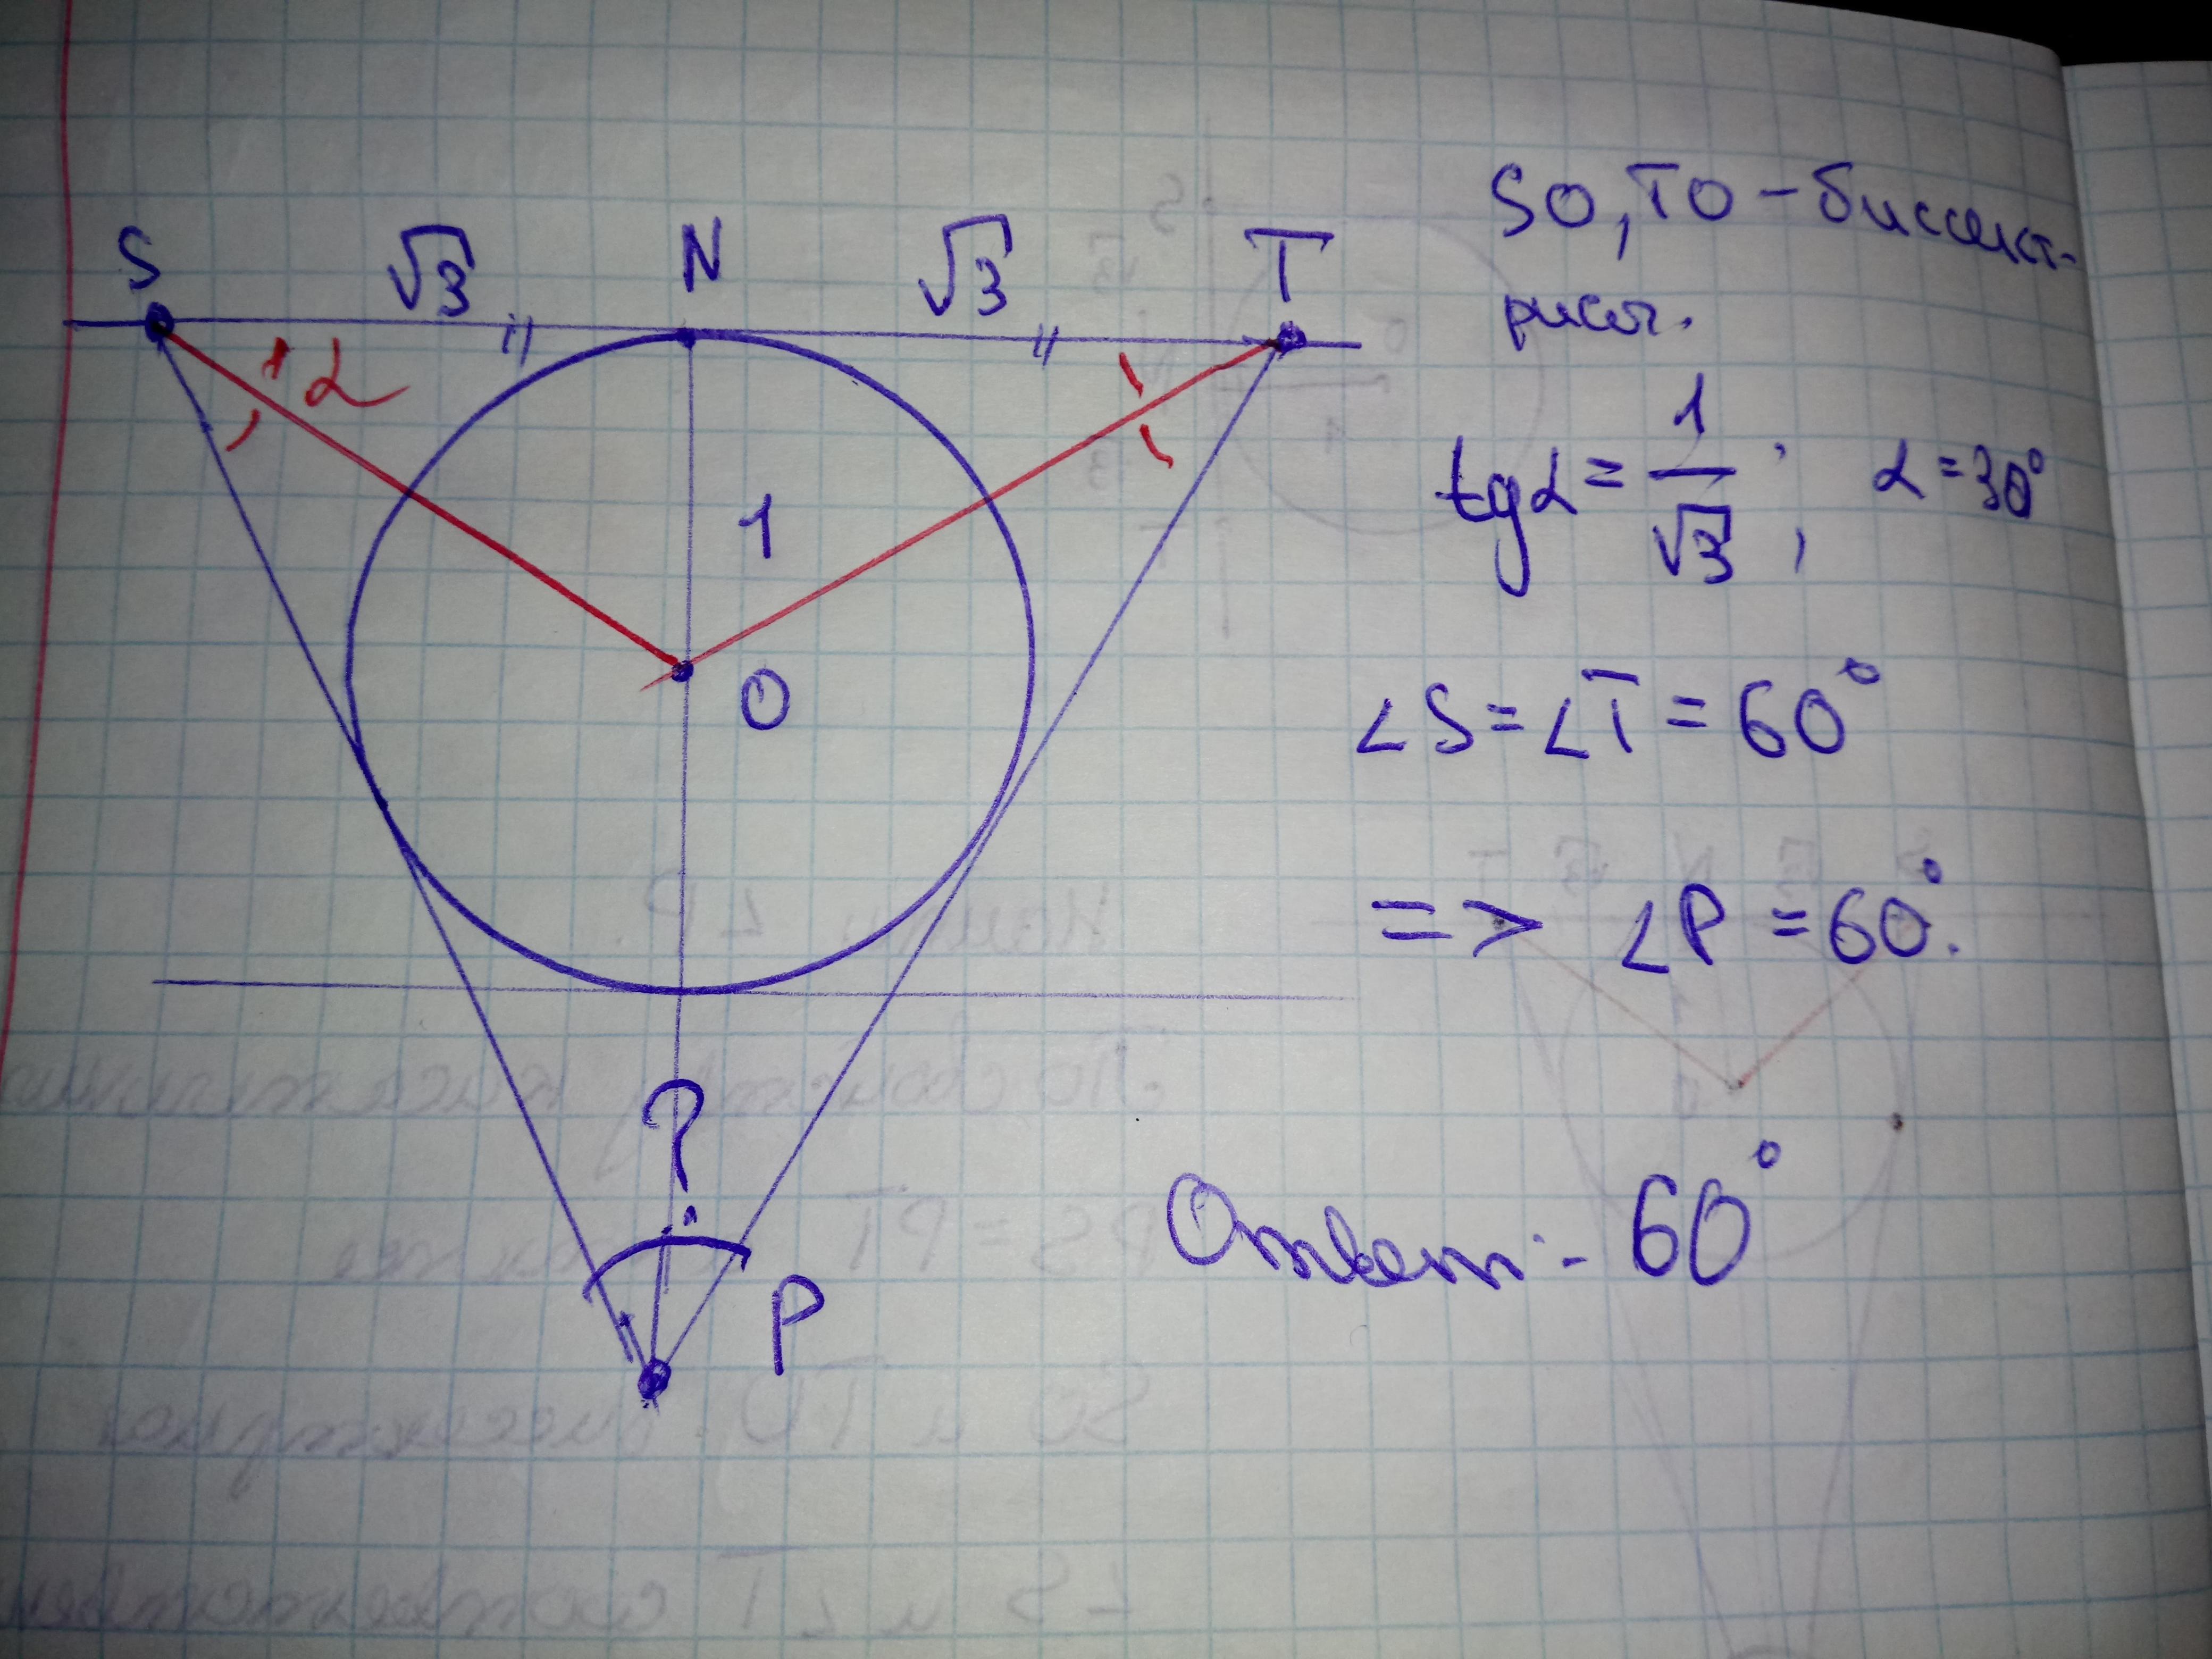 S √3 N √3 T
α
1
O
?
P
SO, TO – биссект-
рисы.
tgα = 1/√3 ; α = 30°
∠S = ∠T = 60°
=> ∠P = 60°.
Ответ: 60°